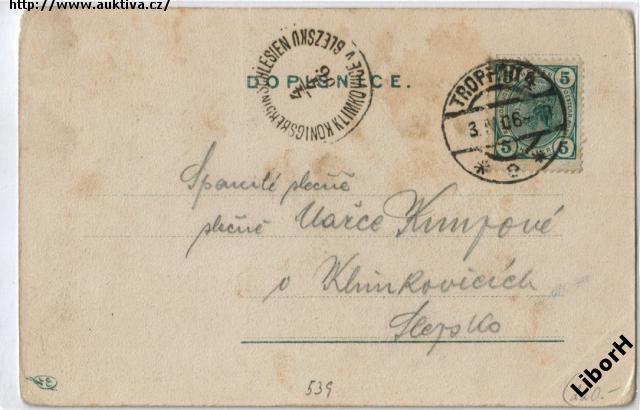 http://www.auktiva.cz/
DOPISNICE.
KÖNIGSBERG IN SCHLESIEN
KLIMKOVICE V SLEZSKU
TROPPAU 4
3. 06
* c *
5 5
5 5
Spanilé slečně
slečně Mařce Kumpové
v Klimkovicích
Slezsko
539
220.-
LiborH